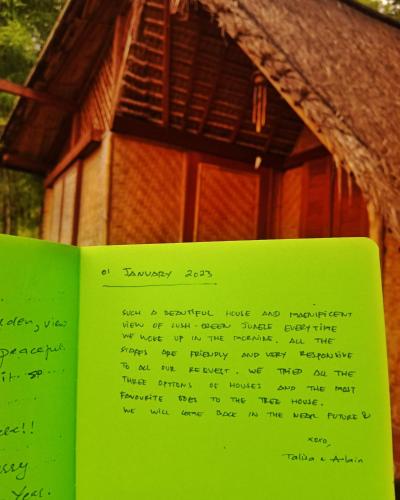 rden, view
peaceful.
it so
!!
Year.
01 JANUARY 2023
SUCH A BEAUTIFUL HOUSE AND MAGNIFICENT
VIEW OF LUSH-GREEN JUNGLE EVERYTIME
WE WOKE UP IN THE MORNING. ALL THE
STAFFS ARE FRIENDLY AND VERY RESPONSIVE
TO ALL OUR REQUEST. WE TRIED ALL THE
THREE OPTIONS OF HOUSES AND THE MOST
FAVOURITE GOES TO THE TREE HOUSE.
WE WILL COME BACK IN THE NEAR FUTURE
xoxo,
Talisa & Alain